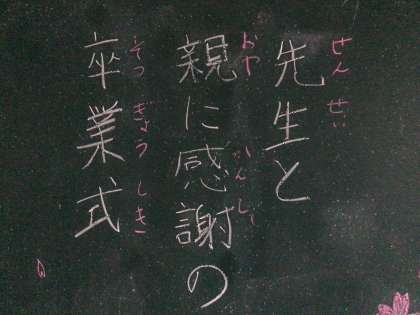 先生と
せんせい
親に感謝の
おや かんしゃ
卒業式
そつぎょうしき